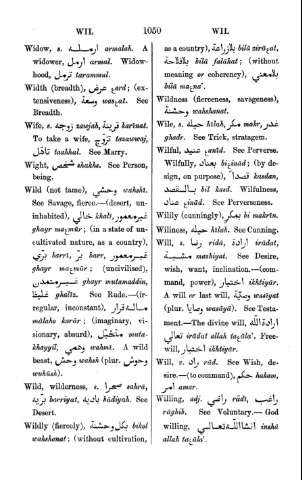 WIL 1050 WIL
Widow, s. ارمله armalah. A
widower, ارمل armal. Widow-
hood, ترمل tarammul.
Width (breadth), عرض ʿarẓ; (ex-
tensiveness), وسعة wasʿat. See
Breadth.
Wife, s. زوجه zawjah, قرينة karīnat.
To take a wife, تزوج tazawwaj,
تاهل taahhal. See Marry.
Wight, شخص shakhs. See Person,
being.
Wild (not tame), وحشي wahshī.
See Savage, fierce.—(desert, un-
inhabited), خالي khālī, غيرمعمور
ghayr maʿmūr; (in a state of un-
cultivated nature, as a country),
بري barrī, بر barr, غيرمعمور
ghayr maʿmūr; (uncivilised),
غيرمتمدن ghayr mutamaddin,
غليظ ghalīz. See Rude.—(ir-
regular, inconstant),
malaho karār; (imaginary, vi-
sionary, absurd), متخيل muta-
khayyil, وهمي wahmī. A wild
beast, وحش wahsh (plur. وحوش
wuhūsh).
Wild, wilderness, s. صحرا sahrā,
برية barrīyat, باديه bādiyah. See
Desert.
Wildly (fiercely), بكل وحشنة bikul
wahshanat; (without cultivation,
as a country), بلازراعة bilā zirāʿat,
بلافلاحة bilā falāhat; (without
meaning or coherency), بلامعني
bilā maʿna'.
Wildness (fierceness, savageness),
وحشنة wahshanat.
Wile, s. حيله hīlah, مكر makr, غدر
ghadr. See Trick, stratagem.
Wilful, عنيد ʿanīd. See Perverse.
Wilfully, بعناد biʿinād; (by de-
sign, on purpose), قصدا kasdan,
بالقصد bil kasd. Wilfulness,
عناد ʿinād. See Perverseness.
Wilily (cunningly), بمكر bi makrin.
Wiliness, حيله hīlah. See Cunning.
Will, s. رضا ridā, ارادة irādat,
مشية mashiyat. See Desire,
wish, want, inclination.—(com-
mand, power), اختيار ikhtiyār.
A will or last will, وصية wasīyat
(plur. وصايا wasāyā). See Testa-
ment.—The divine will, ارادة الله
تعالي irādat allah taʿāla'. Free-
will, اختيار ikhtiyār.
Will, v. راد rād. See Wish, de-
sire.—(to command), حكم hakam,
امر amer.
Willing, adj. راضي rādī, راغب
rāghib. See Voluntary.— God
willing, انشا الله تعالي inshā
allah taʿāla'.